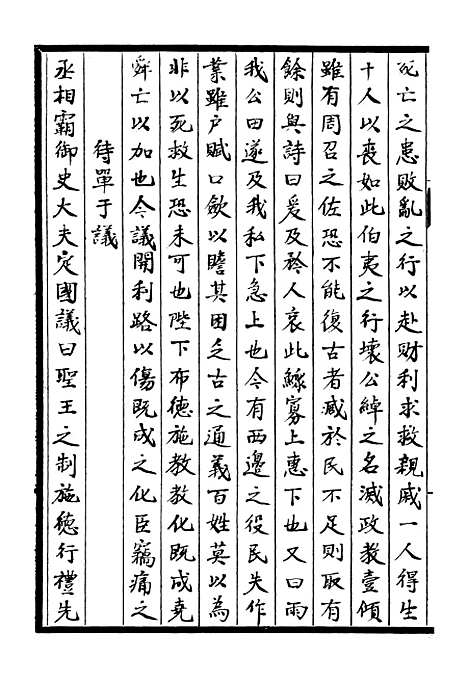 死亡之患敗亂之行以赴財利求救親戚一人得生
十人以喪如此伯夷之行壞公綽之名滅政教壹傾
雖有周召之佐恐不能復古者臧於民不足則取有
餘則與詩曰爰及矜人哀此鰥寡上惠下也又曰雨
我公田遂及我私下急上也今有西邊之役民失作
業雖戶賦口斂以贍其困乏古之通義百姓莫以為
非以死救生恐未可也陛下布德施教教化既成堯
舜亡以加也今議開利路以傷既成之化臣竊痛之
待單于議
丞相霸御史大夫定國議曰聖王之制施德行禮先